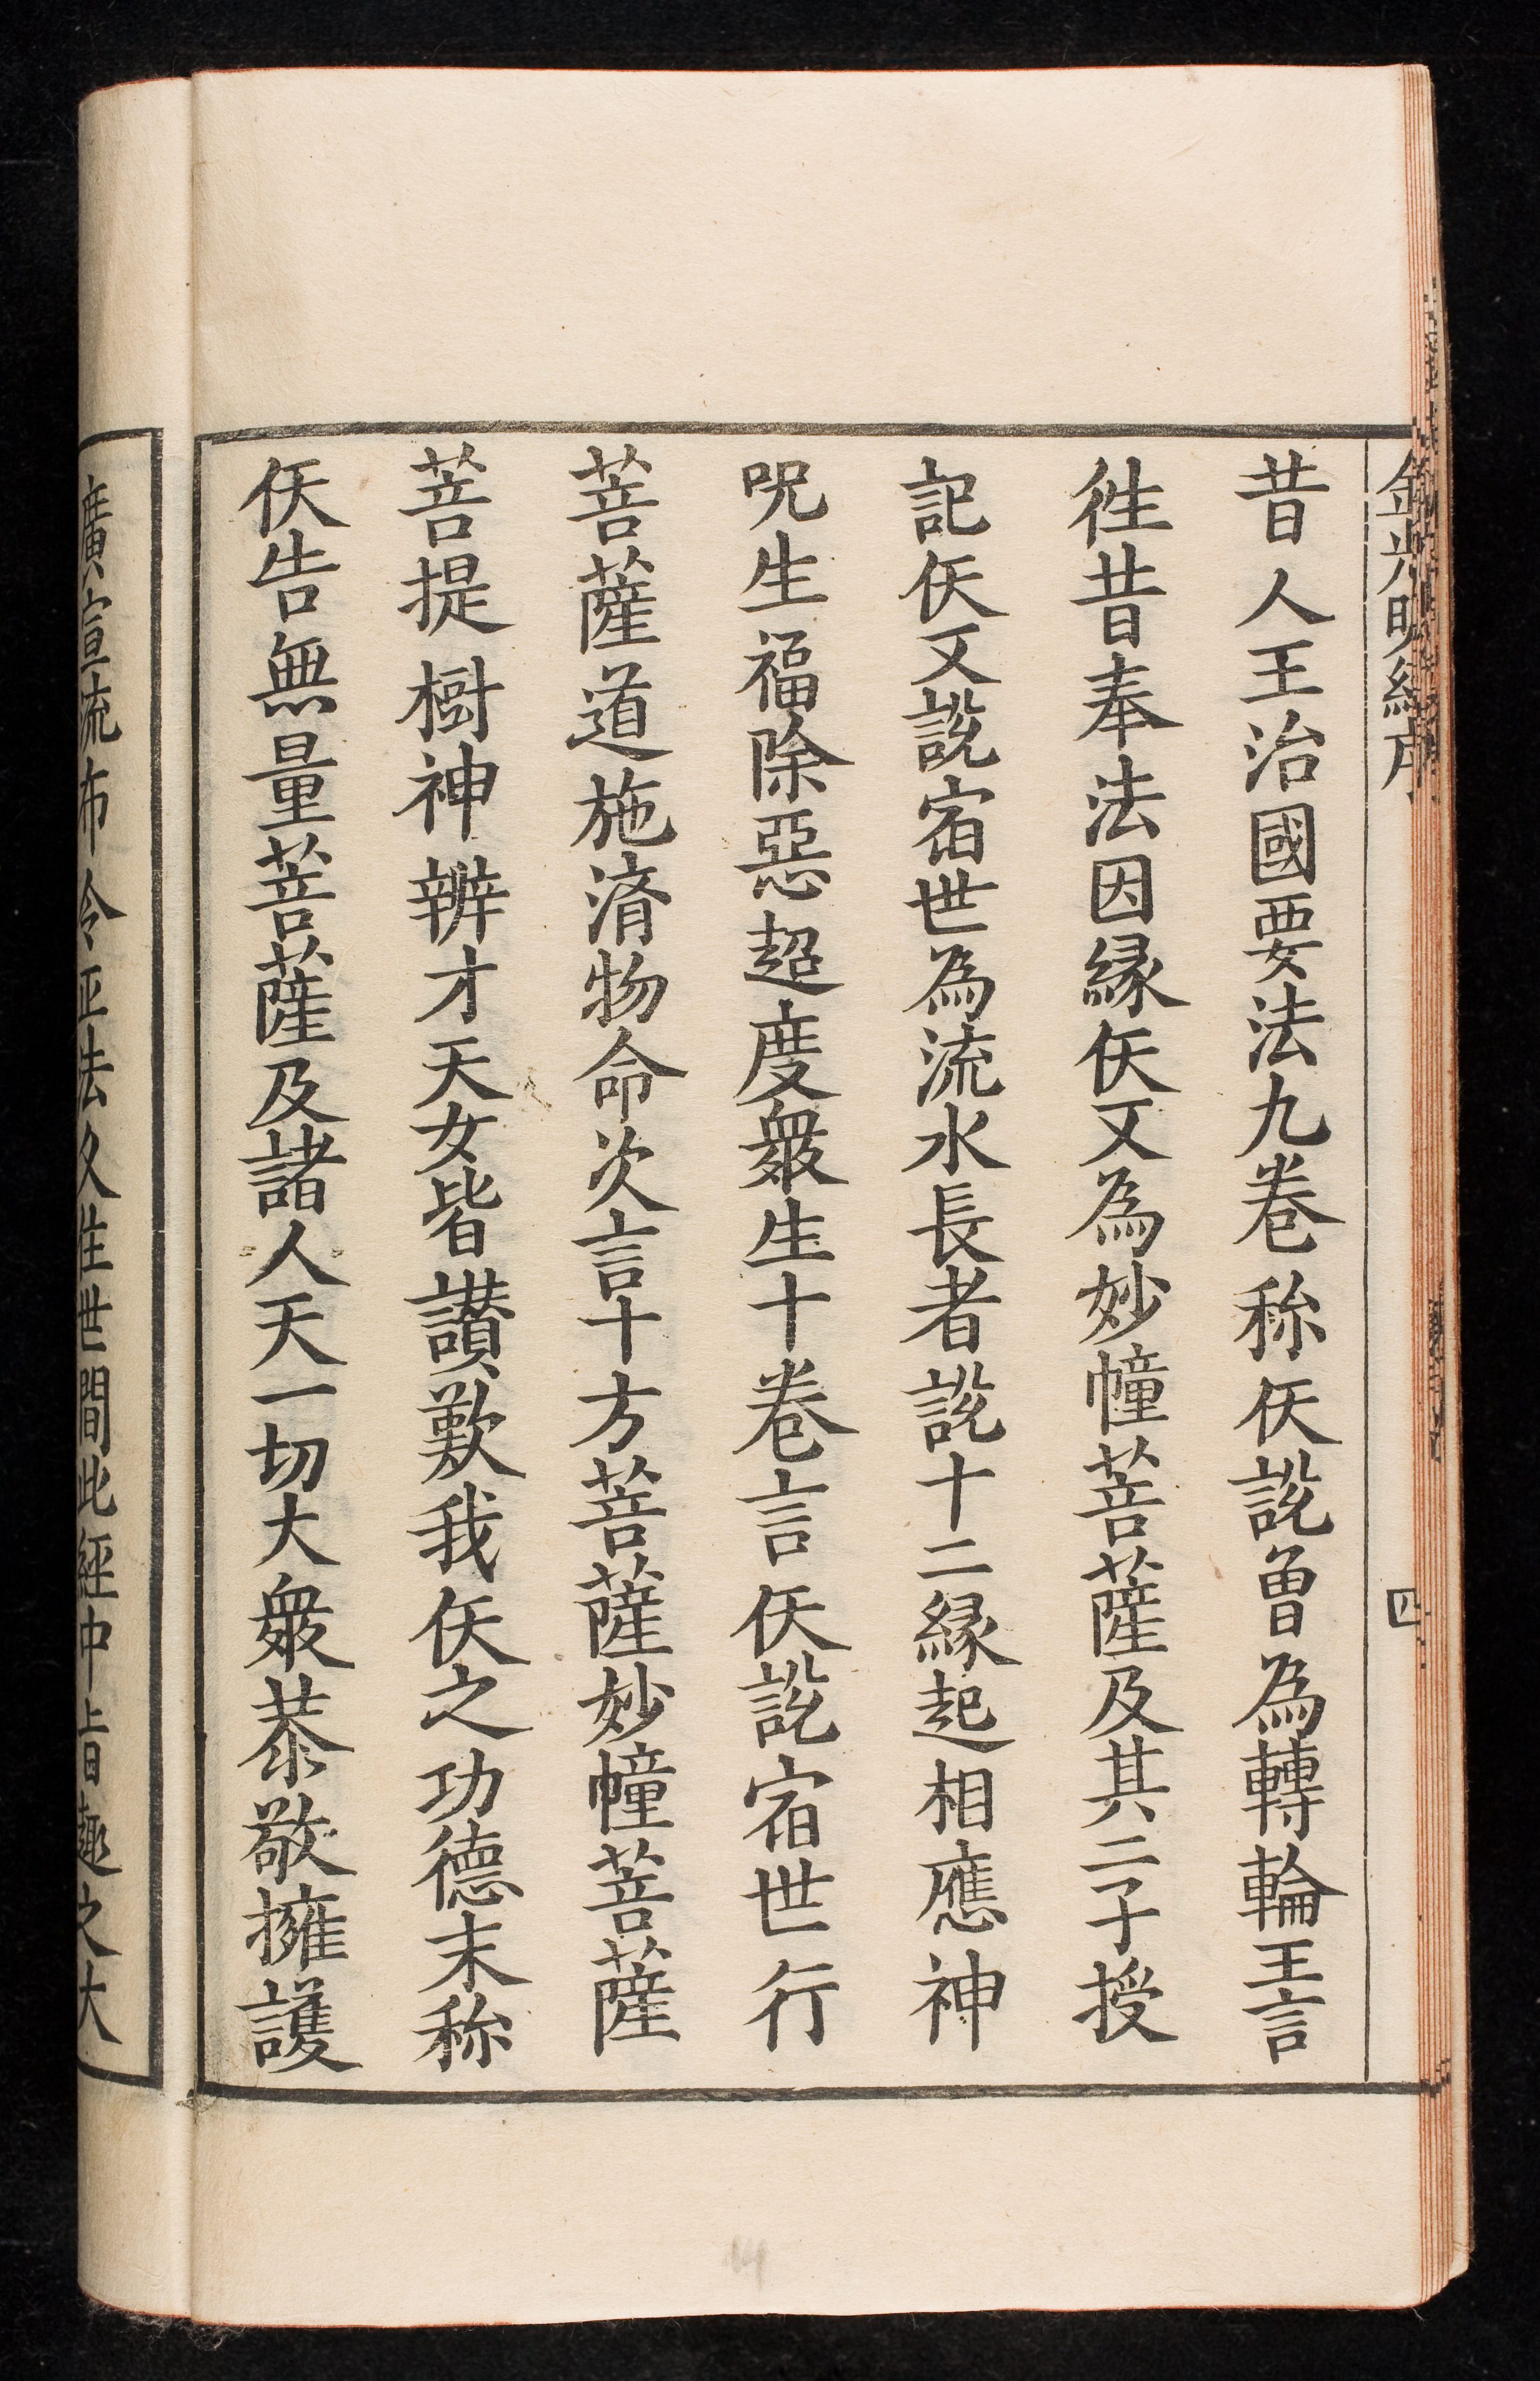 金光明經序
四
昔人王治國要法九卷称仸說曾為轉輪王言
徃昔奉法因縁仸又為妙幢菩薩及其二子授
記仸又說宿世為流水長者說十二縁起相應神
呪生福除惡超度衆生十卷言仸說宿世行
菩薩道施濟物命次言十方菩薩妙幢菩薩
菩提樹神辨才天女皆讃歎我仸之功德末称
仸告無量菩薩及諸人天一切大衆恭敬擁護
廣宣流布令正法久住世間此經中旨趣之大